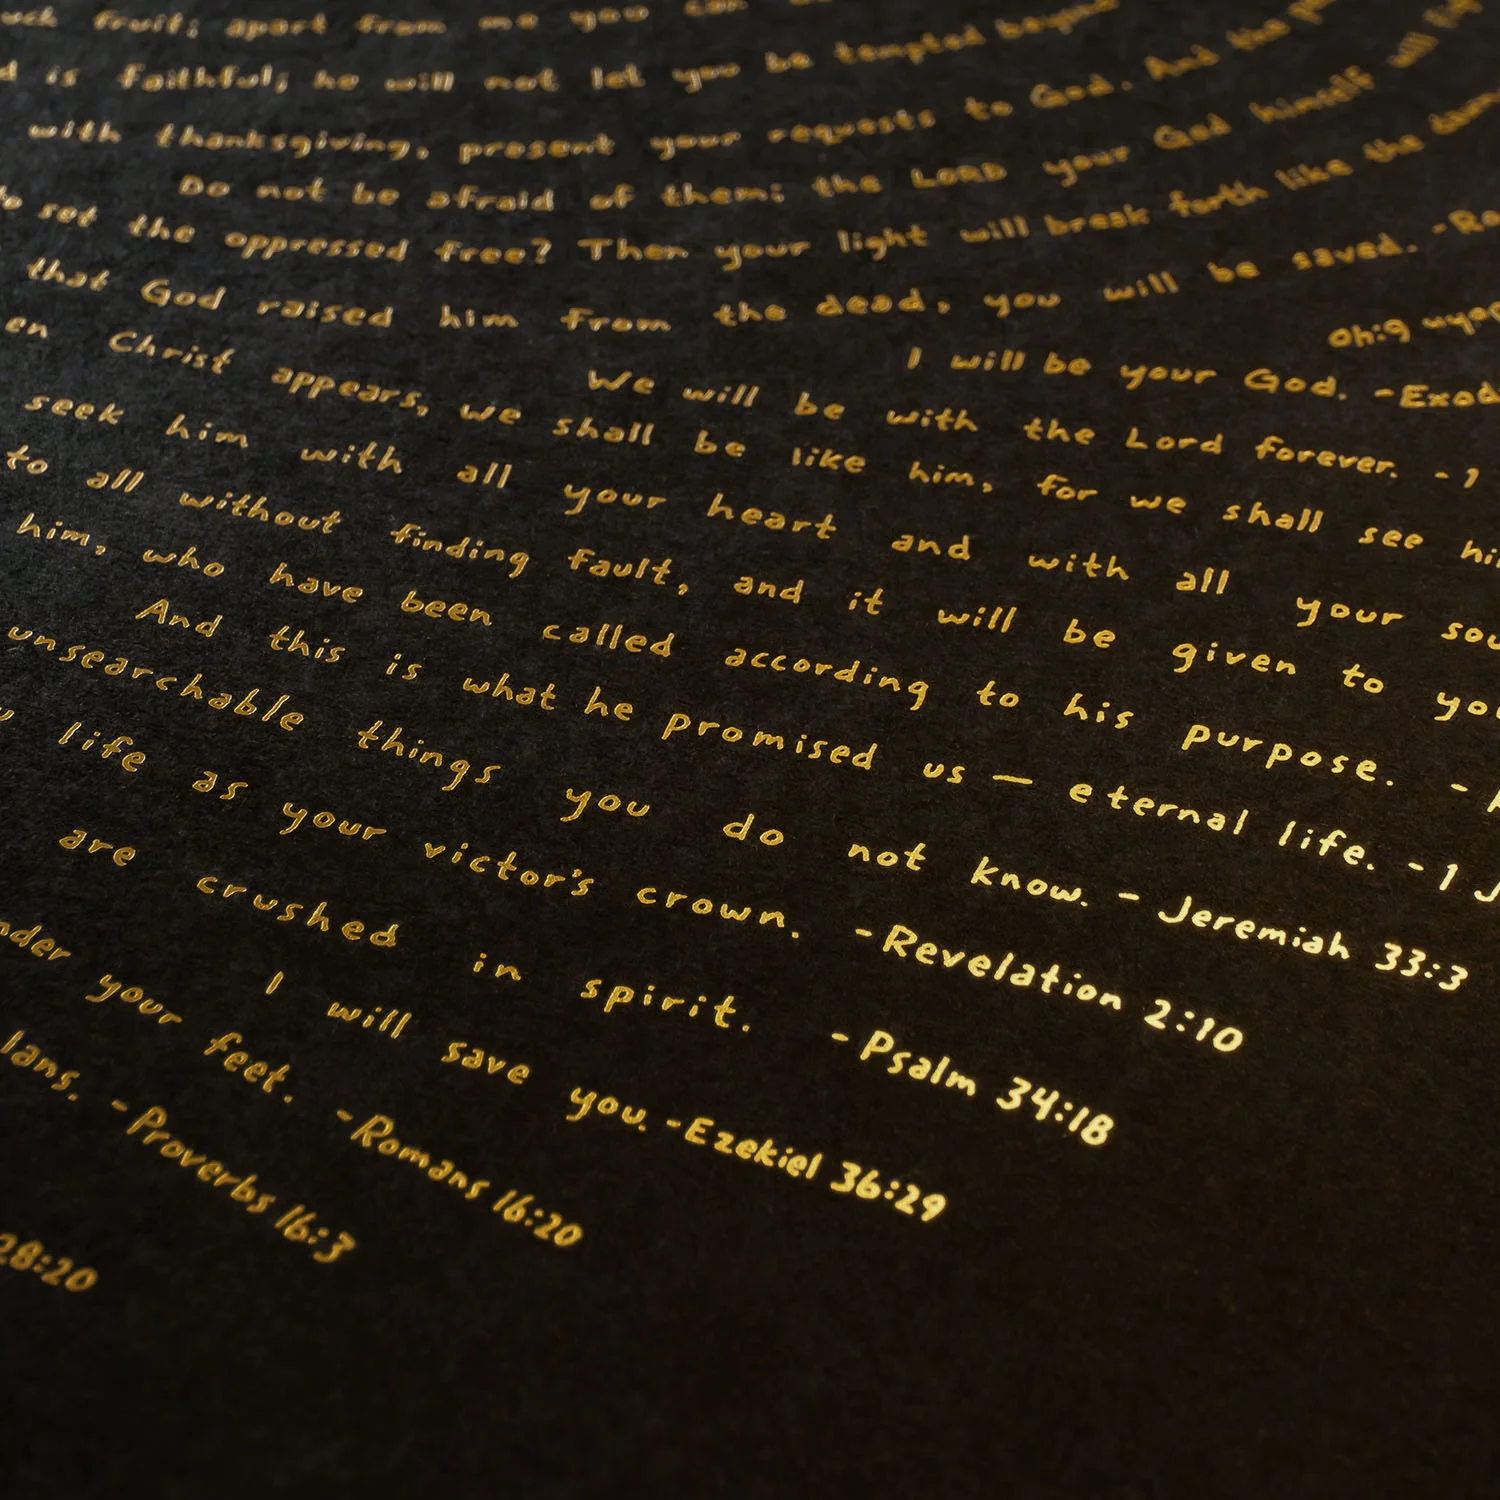 fruit; apart from me you can
is faithful; he will not let you be tempted beyond
with thanksgiving, present your requests to God. And the
Do not be afraid of them; the LORD your God himself will
to set the oppressed free? Then your light will break forth like the dawn
that God raised him from the dead, you will be saved. -Ro
I will be your God. -Exod
en Christ appears, we shall be like him, for we shall see hi
We will be with the Lord forever. -1
seek him with all your heart and with all your sou
to all without finding fault, and it will be given to you
him, who have been called according to his purpose. -
And this is what he promised us — eternal life. -1 J
unsearchable things you do not know. - Jeremiah 33:3
life as your victor's crown. -Revelation 2:10
are crushed in spirit. -Psalm 34:18
I will save you. -Ezekiel 36:29
nder your feet. -Romans 16:20
lans. -Proverbs 16:3
28:20